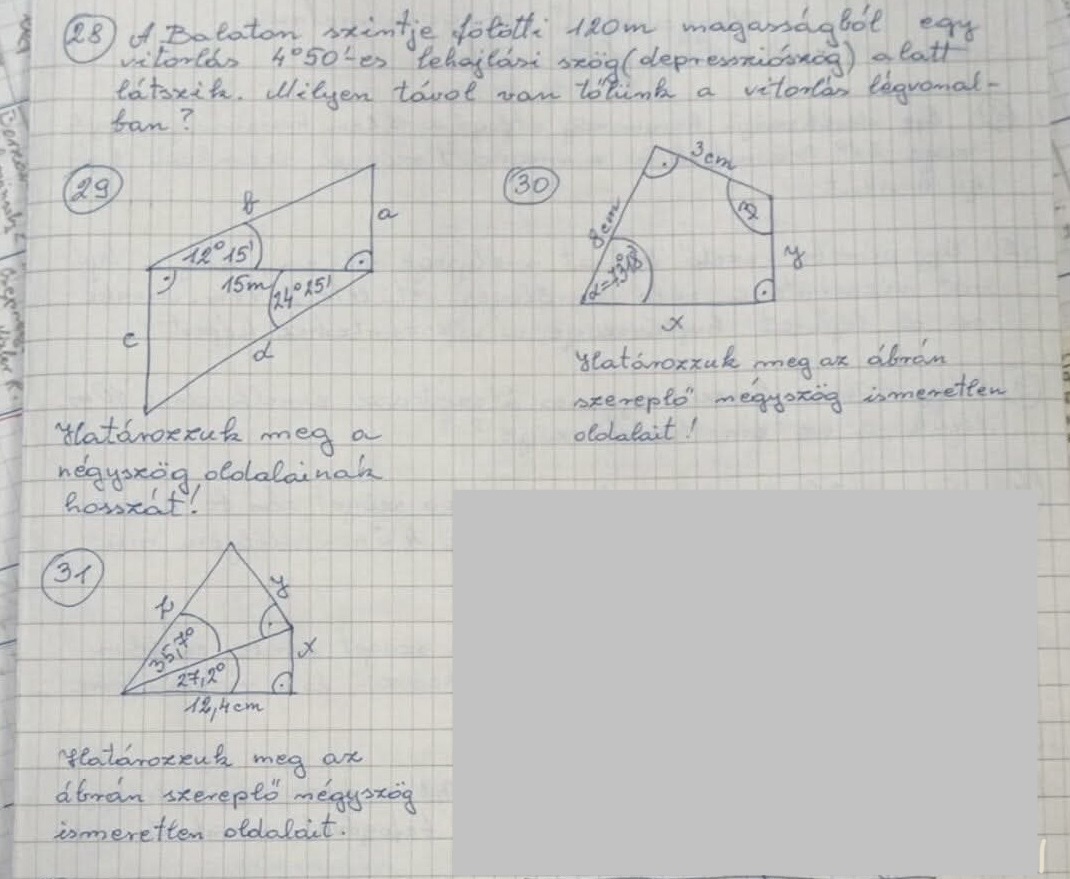 28 A Balaton szintje fölötti 120m magasságból egy
vitorlás 4°50'-es lehajlási szög (depresziószög) alatt
látszik. Milyen távol van tőlünk a vitorlás légvonal-
ban?
29
b
a
12°15'
15m
24°25'
c
d
Határozzuk meg a
négyszög oldalainak
hosszát!
30
3cm
8cm
y
x
Határozzuk meg az ábrán
szereplő négyszög ismeretlen
oldalait!
31
y
35,7°
x
27,2°
12,4cm
Határozzuk meg az
ábrán szereplő négyszög
ismeretlen oldalait.